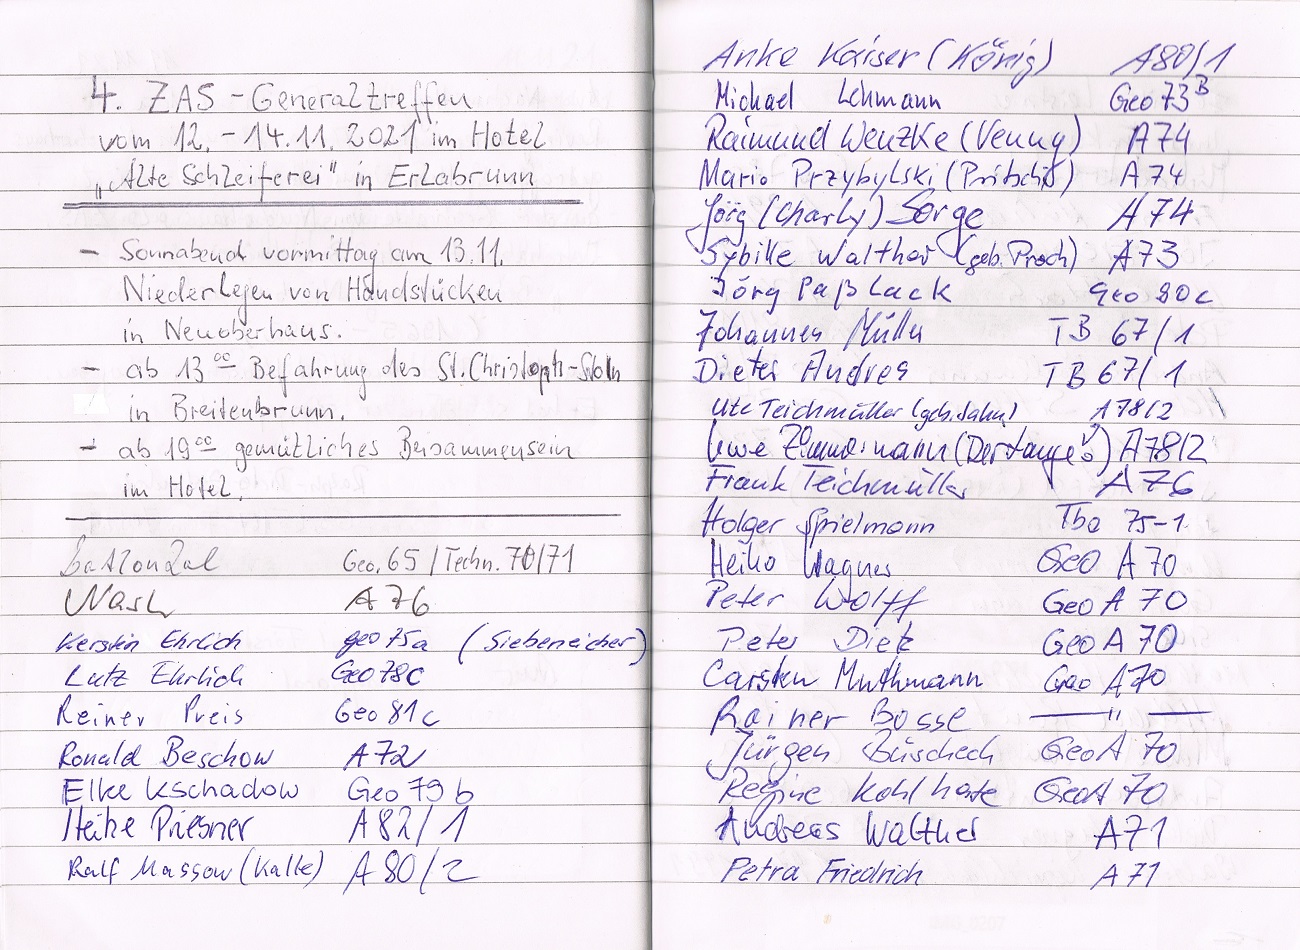 4. ZAS - Generaltreffen
vom 12. - 14.11.2021 im Hotel
„Alte Schleiferei" in Erlabrunn
- Sonnabend vormittag am 13.11.
Niederlegen von Handstücken
in Neuoberhaus.
- ab 13 oo Befahrung des St. Christoph-Stolln
in Breitenbrunn.
- ab 19 oo gemütliches Beisammensein
im Hotel.
Geo. 65 / Techn. 70/71
A 76
Kerstin Ehrlich geo 75a (Siebeneicher)
Lutz Ehrlich Geo 78c
Reiner Preis Geo 81c
Ronald Beschow A 72
Elke Kschadow Geo 79 b
Heike Priesner A 82/1
Ralf Massow (Kalle) A 80/2
Anke Kaiser (König) A80/1
Michael Lehmann Geo 73 B
Raimund Wenzke (Venny) A 74
Mario Przybylski (Pritschi) A 74
Jörg (Charly) Sorge A 74
Sybille Walther (geb. Proch) A73
Jörg Paßlack Geo 80c
Johannes Müller TB 67/1
Dieter Andres TB 67/1
Ute Teichmüller (geb. Jahn) A 78/2
Uwe Zimmermann A78/2
Frank Teichmüller A 76
Holger Spielmann Tba 75-1
Heiko Wagner Geo A 70
Peter Wolff Geo A 70
Peter Dietz Geo A 70
Carsten Muthmann Geo A70
Rainer Bosse — " —
Jürgen Büscheck Geo A 70
Regine Kohlhase GeoA 70
Andreas Walther A71
Petra Friedrich A 71